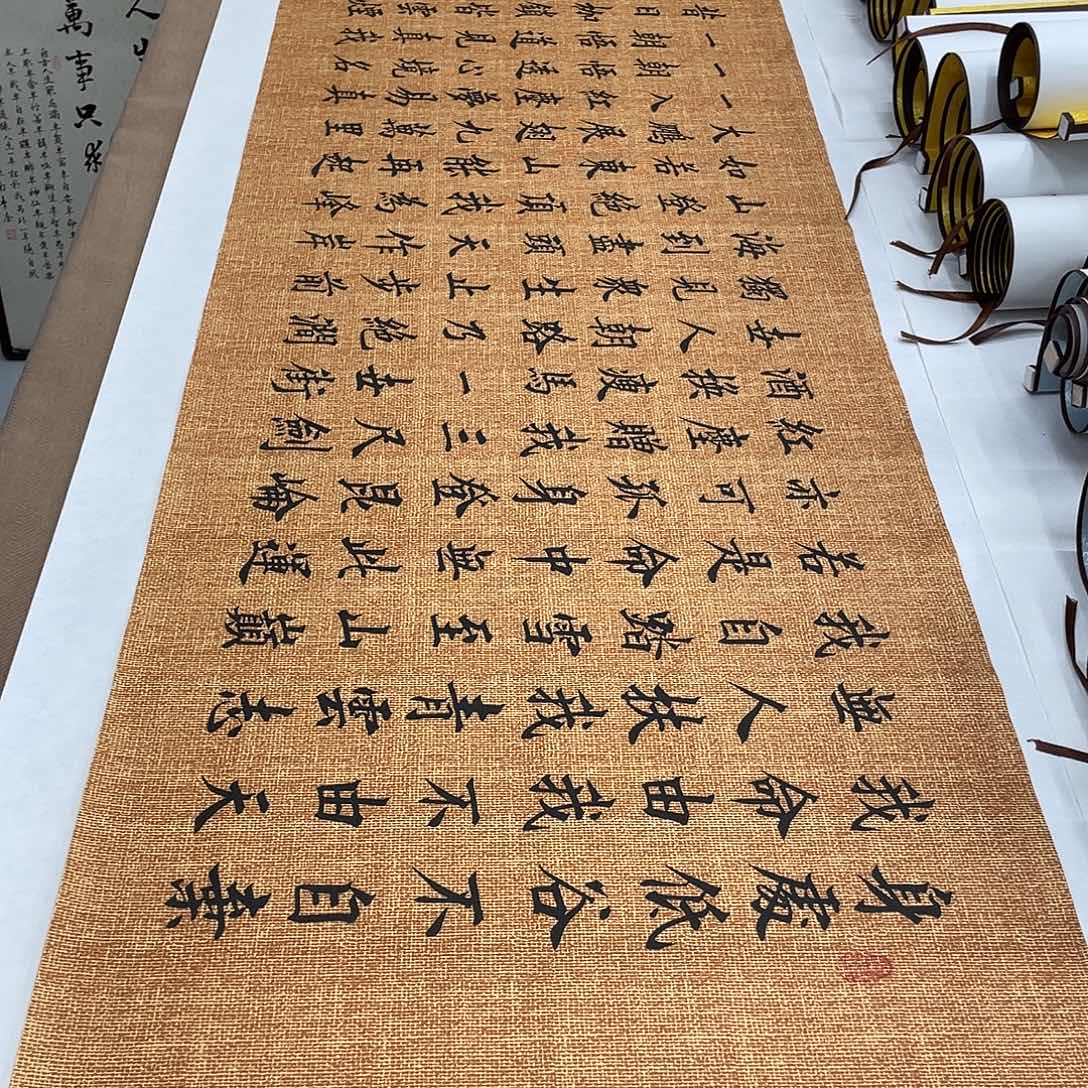 身處低谷不自棄
我命由我不由天
無人扶我青雲志
我自踏雪至山巔
若是命中無此運
亦可孤身登昆崙
紅塵贈我三尺劍
酒換瘦馬一世街
世人朝路乃絕澗
獨見眾生止步前
海到盡頭天作岸
山登絕頂我為峰
如若東山能再起
大鵬展翅九萬里
一入紅塵夢易真
一朝悟透心境名
一朝悟道見真我
昔日枷鎖皆雲煙
萬事只求